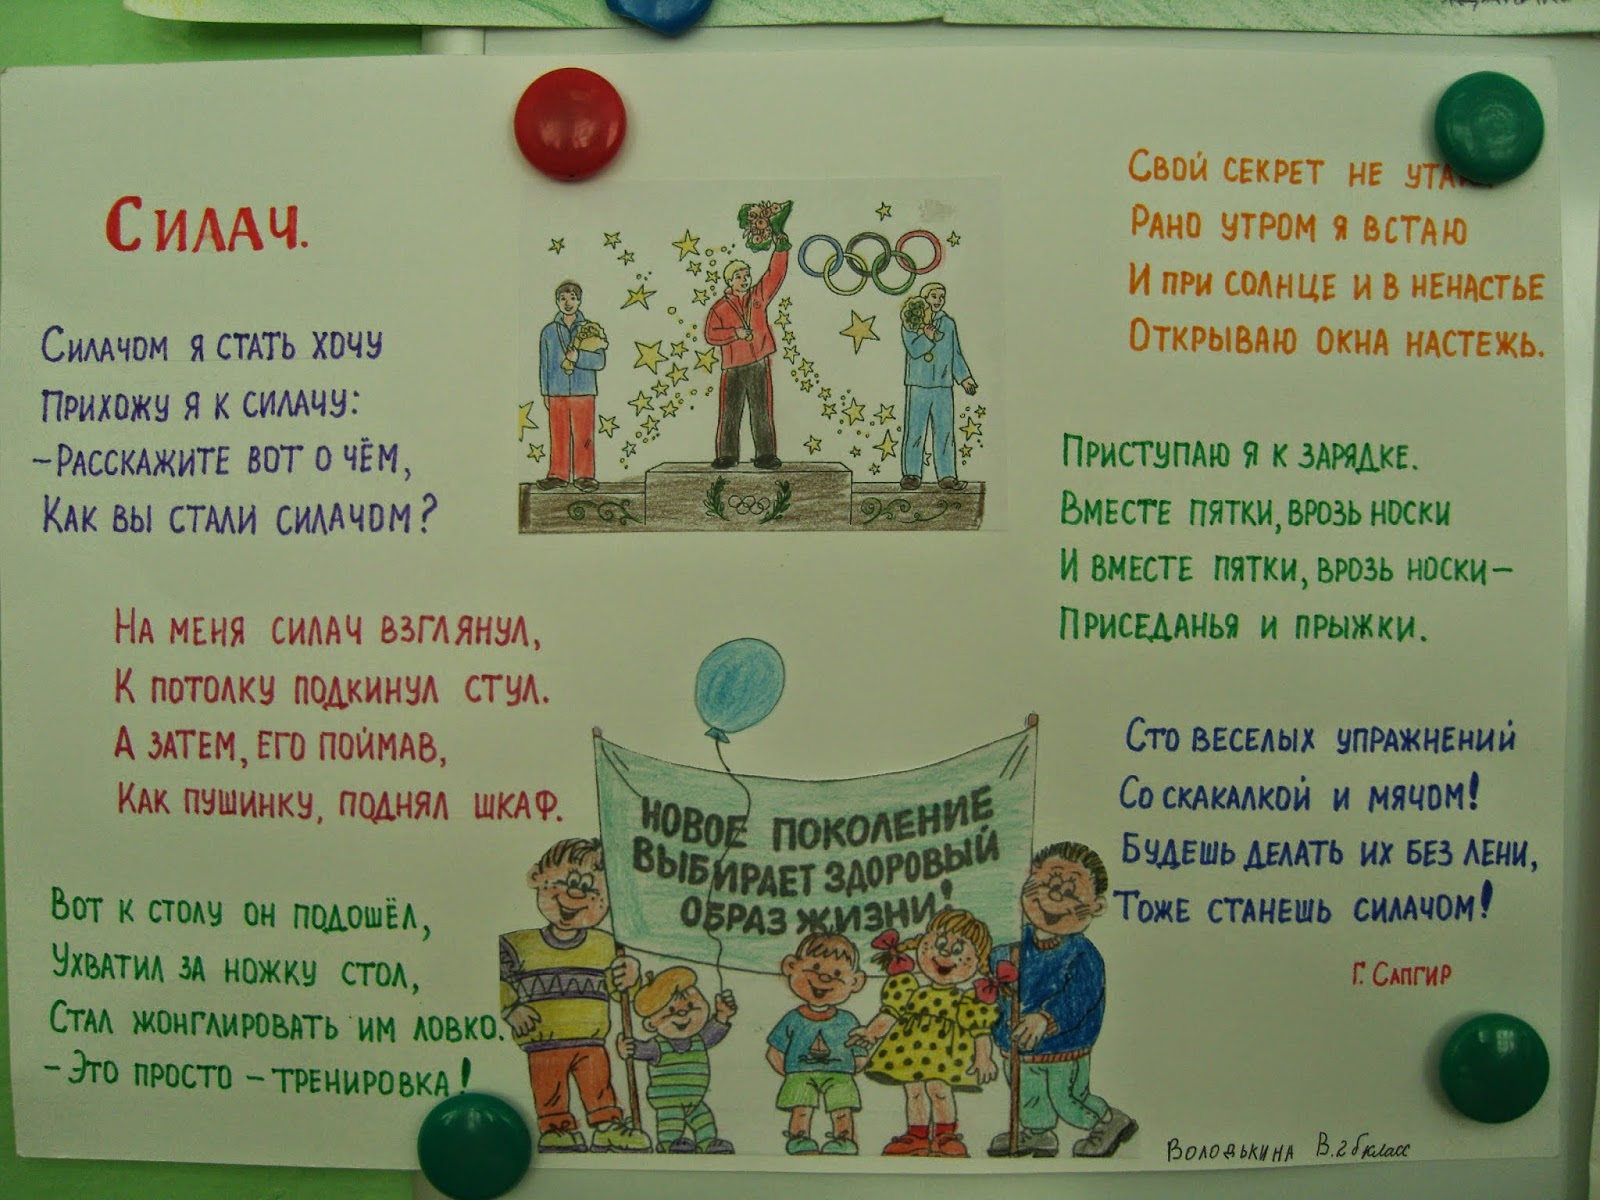 Силач.
Силачом я стать хочу
Прихожу я к силачу:
-Расскажите вот о чём,
Как вы стали силачом?
На меня силач взглянул,
К потолку подкинул стул.
А затем, его поймав,
Как пушинку, поднял шкаф.
Вот к столу он подошёл,
Ухватил за ножку стол,
Стал жонглировать им ловко.
-Это просто - тренировка!
Свой секрет не
Рано утром я встаю
И при солнце и в ненастье
Открываю окна настежь.
Приступаю я к зарядке.
Вместе пятки, врозь носки
И вместе пятки, врозь носки-
Приседанья и прыжки.
Сто веселых упражнений
Со скакалкой и мячом!
Будешь делать их без лени,
Тоже станешь силачом!
Г. Сапгир
НОВОЕ ПОКОЛЕНИЕ
ВЫБИРАЕТ ЗДОРОВЫЙ
ОБРАЗ ЖИЗНИ!
Володькина В. 2б класс